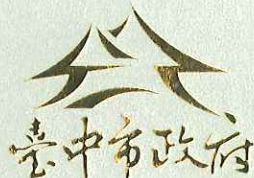 臺中市政府